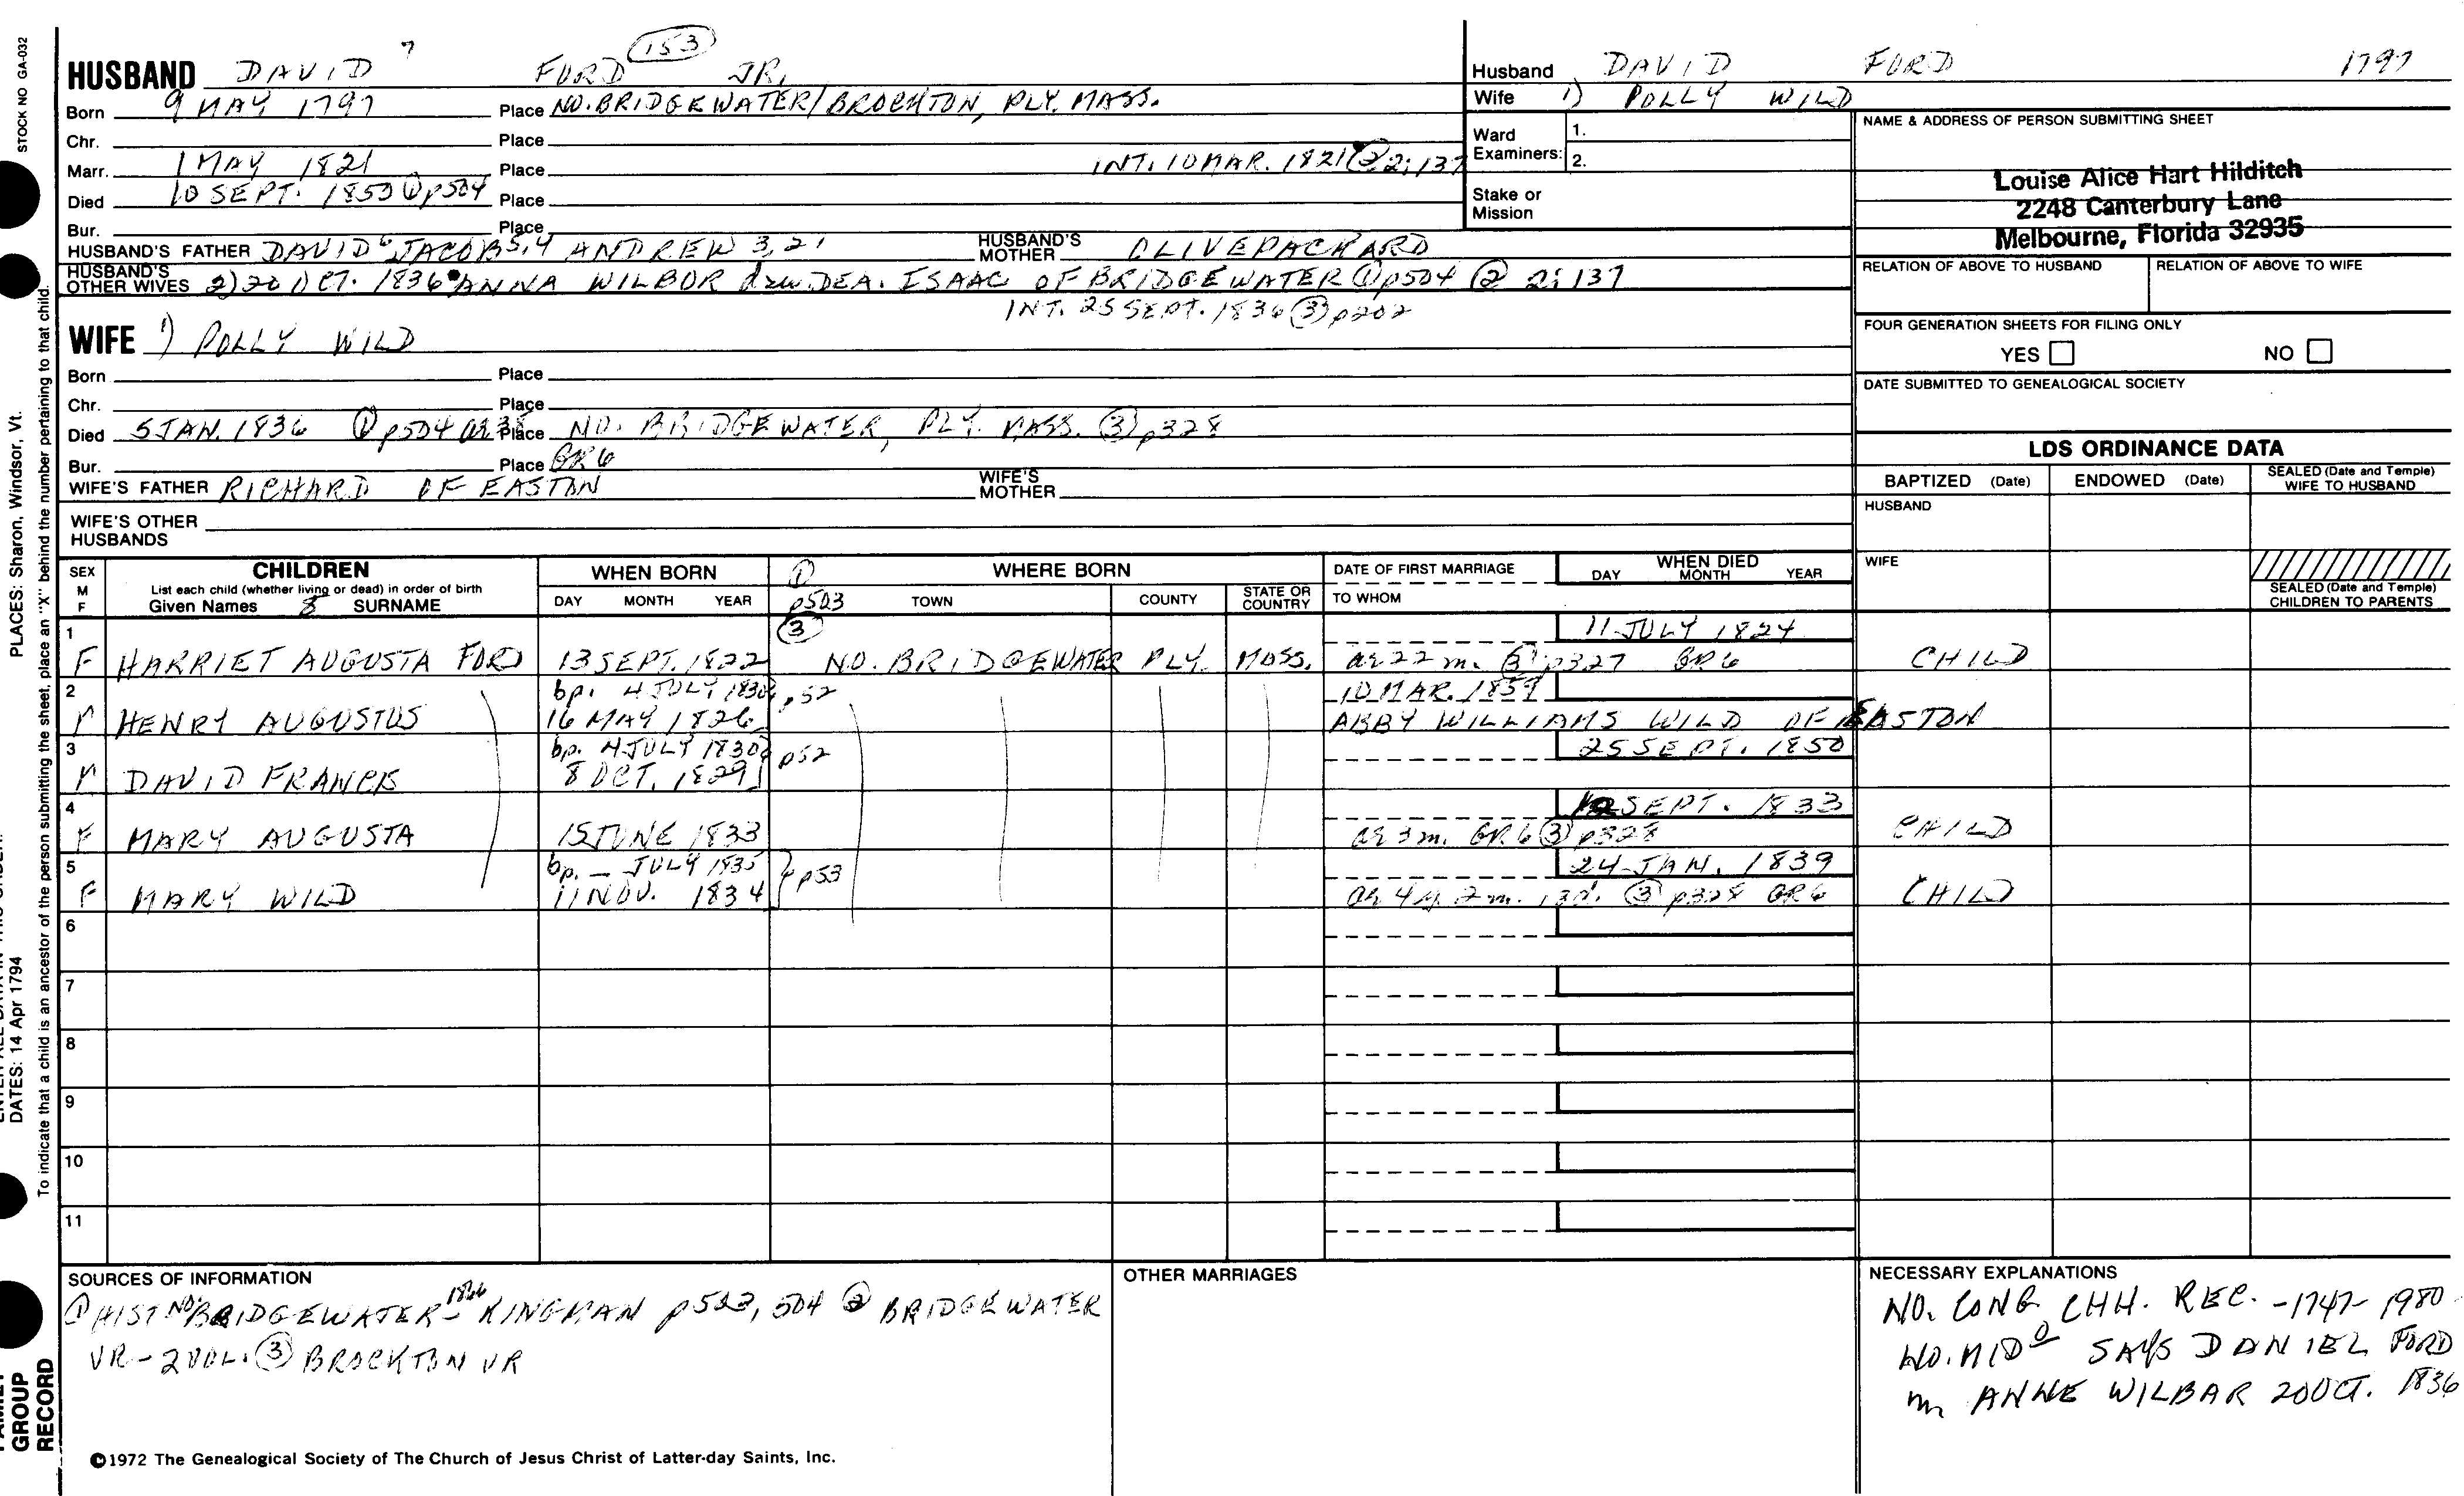 STOCK NO GA-032
HUSBAND DAVID 7 FORD (153) JR.
Born 9 MAY 1797 Place NO. BRIDGEWATER/BROCKTON, PLY. MASS.
Chr. Place
Marr. 1 MAY 1821 Place INT. 10 MAR. 1821 ③ 2:137
Died 10 SEPT. 1850 ① p504 Place
Bur. Place
HUSBAND'S FATHER DAVID 6 JACOB 5,4 ANDREW 3,2,1 HUSBAND'S MOTHER OLIVE PACKARD
HUSBAND'S OTHER WIVES 2) 20 OCT. 1836 ANNA WILBOR DEA. ISAAC OF BRIDGEWATER ① p504 ② 2:137
INT. 25 SEPT. 1836 ③ p202
WIFE 1) POLLY WILD
Born Place
Chr. Place
Died 5 JAN. 1836 ① p504 ae 38 Place NO. BRIDGEWATER, PLY. MASS. ③ p328
Bur. Place GR6
WIFE'S FATHER RICHARD OF EASTON WIFE'S MOTHER
WIFE'S OTHER HUSBANDS
Husband DAVID FORD 1797
Wife 1) POLLY WILD
Ward Examiners: 1.
2.
Stake or Mission
NAME & ADDRESS OF PERSON SUBMITTING SHEET
Louise Alice Hart Hilditch
2248 Canterbury Lane
Melbourne, Florida 32935
RELATION OF ABOVE TO HUSBAND RELATION OF ABOVE TO WIFE
FOUR GENERATION SHEETS FOR FILING ONLY
YES NO
DATE SUBMITTED TO GENEALOGICAL SOCIETY
LDS ORDINANCE DATA
BAPTIZED (Date) ENDOWED (Date) SEALED (Date and Temple) WIFE TO HUSBAND
HUSBAND
WIFE
SEALED (Date and Temple) CHILDREN TO PARENTS
SEX M F
CHILDREN
List each child (whether living or dead) in order of birth
Given Names 8 SURNAME
WHEN BORN
DAY MONTH YEAR
① p503 ③
WHERE BORN
TOWN COUNTY STATE OR COUNTRY
DATE OF FIRST MARRIAGE
TO WHOM
WHEN DIED
DAY MONTH YEAR
1 11 JULY 1824
F HARRIET AUGUSTA FORD 13 SEPT. 1822 NO. BRIDGEWATER PLY. MASS. ae 22 m. ③ p327 GR6 CHILD
2 bp. 4 JULY 1830 p52 10 MAR. 1859
M HENRY AUGUSTUS 16 MAY 1826 ABBY WILLIAMS WILD OF EASTON
3 bp. 4 JULY 1830 p52 25 SEPT. 1850
M DAVID FRANCIS 8 OCT. 1829
4 SEPT. 1833
F MARY AUGUSTA 15 JUNE 1833 ae 3 m. GR6 ③ p328 CHILD
5 bp. — JULY 1835 p53 24 JAN. 1839
F MARY WILD 11 NOV. 1834 ae 4 y. 2 m. 13 d. ③ p328 GR6 CHILD
6
7
8
9
10
11
SOURCES OF INFORMATION
① HIST NO. BRIDGEWATER - 1866 KINGMAN p503, 504 ② BRIDGEWATER
VR - 2 VOL. ③ BROCKTON VR
OTHER MARRIAGES
NECESSARY EXPLANATIONS
NO. CONG. CHH. REC. - 1747 - 1980
SAYS DANIEL FORD
m ANNE WILBAR 20 OCT. 1836
©1972 The Genealogical Society of The Church of Jesus Christ of Latter-day Saints, Inc.
PLACES: Sharon, Windsor, Vt.
DATES: 14 Apr 1794
To indicate that a child is an ancestor of the person submitting the sheet, place an "X" behind the number pertaining to that child.
GROUP
RECORD